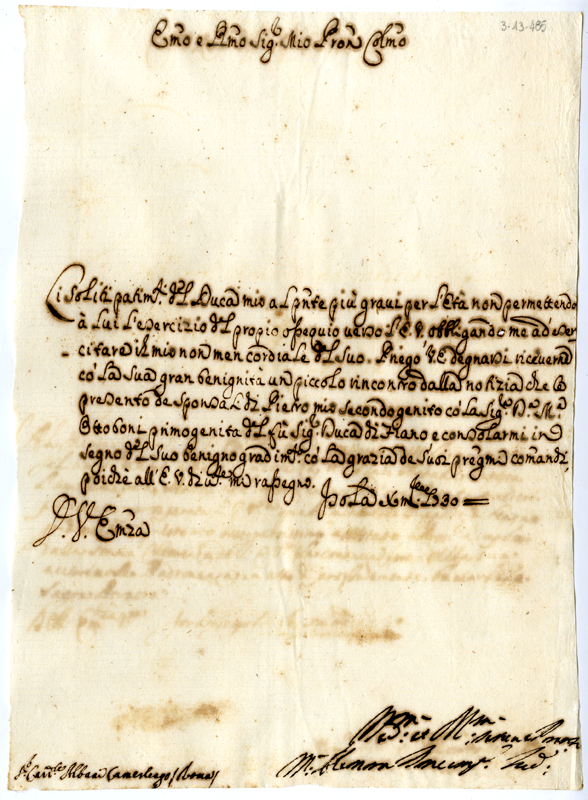 3-13-485
Emo e Rmo Sig.r Mio Pron Colmo
Li soliti patim.ti del Duca mio al pnte più gravi per l'Età non permettendo
à Lui l'esercizio del propio ossequio verso l'E.V. obbligando me ad eser-
citare il mio non men cordiale del suo. Priego V.E. degnarsi ricevere
cò la sua gran benignità un piccolo rincontro dalla notizia che le
presento de sponsali di Pietro mio secondogenito cò la Sig.ra D. M.a
Ottoboni primogenita del fù Sig.r Duca di Fiano e consolarmi in
segno del suo benigno gradim.to cò la grazia de suoi pregmi comandi,
poichè all'E.V. di me rassegno. Isola 1730
D. V. Emza
S.r Card.le Albani Camerlengo /Roma/